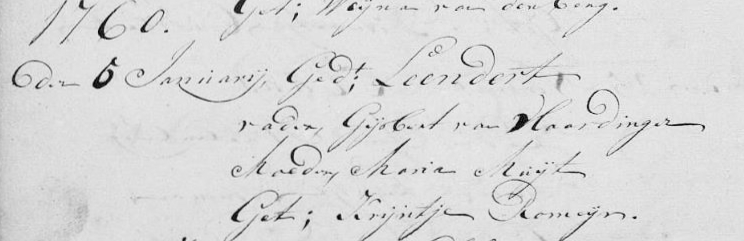 1760. Get; Weijna van den berg.
6den 5 Januarij, Ged:t; Leendert
vader, Gijsbert van Vlaardingen
Moeder, Maria Muijt
Get; Krijntje Romeijn.